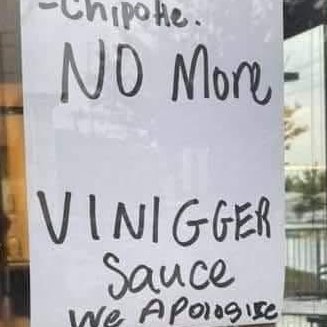 -Chipotle.
NO More
VINIGGER
Sauce
We APologise